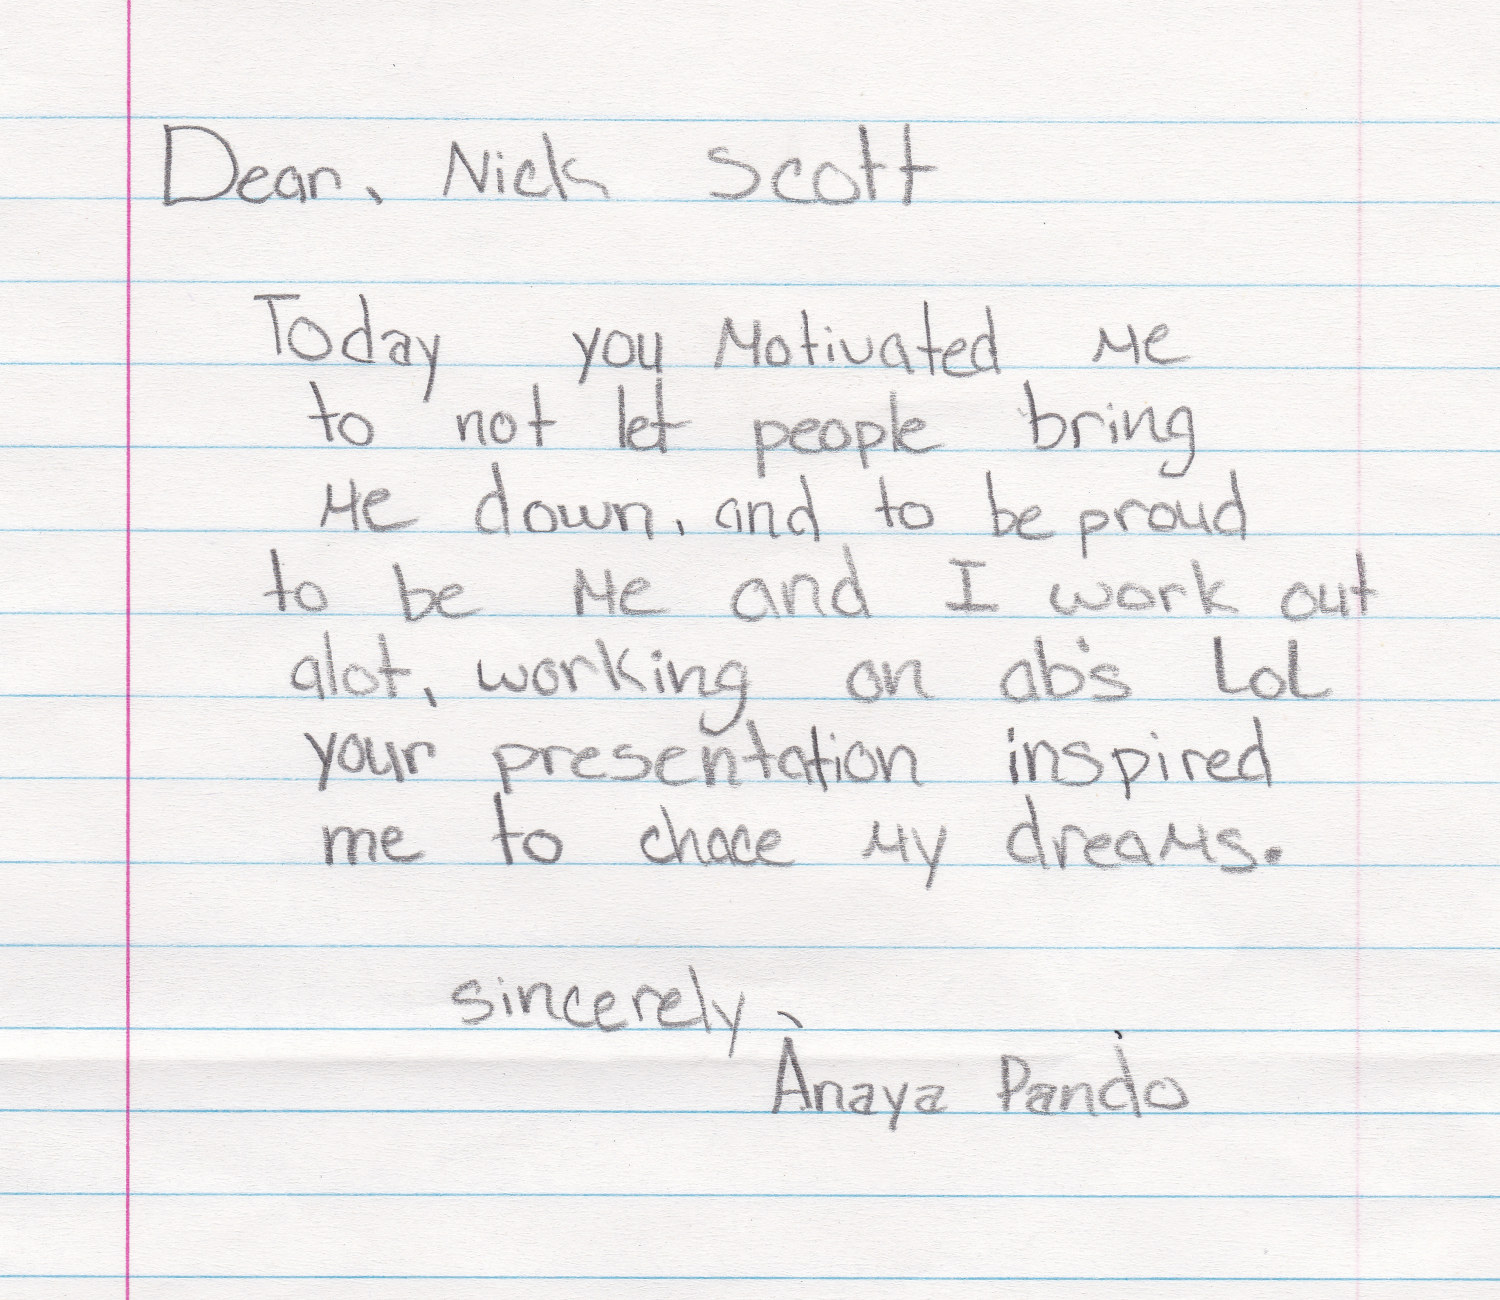 Dear, Nick Scott
Today you Motivated Me
to not let people bring
Me down, and to be proud
to be Me and I work out
alot, working on ab's LoL
your presentation inspired
me to chace My dreaMs.
sincerely,
Anaya Pando